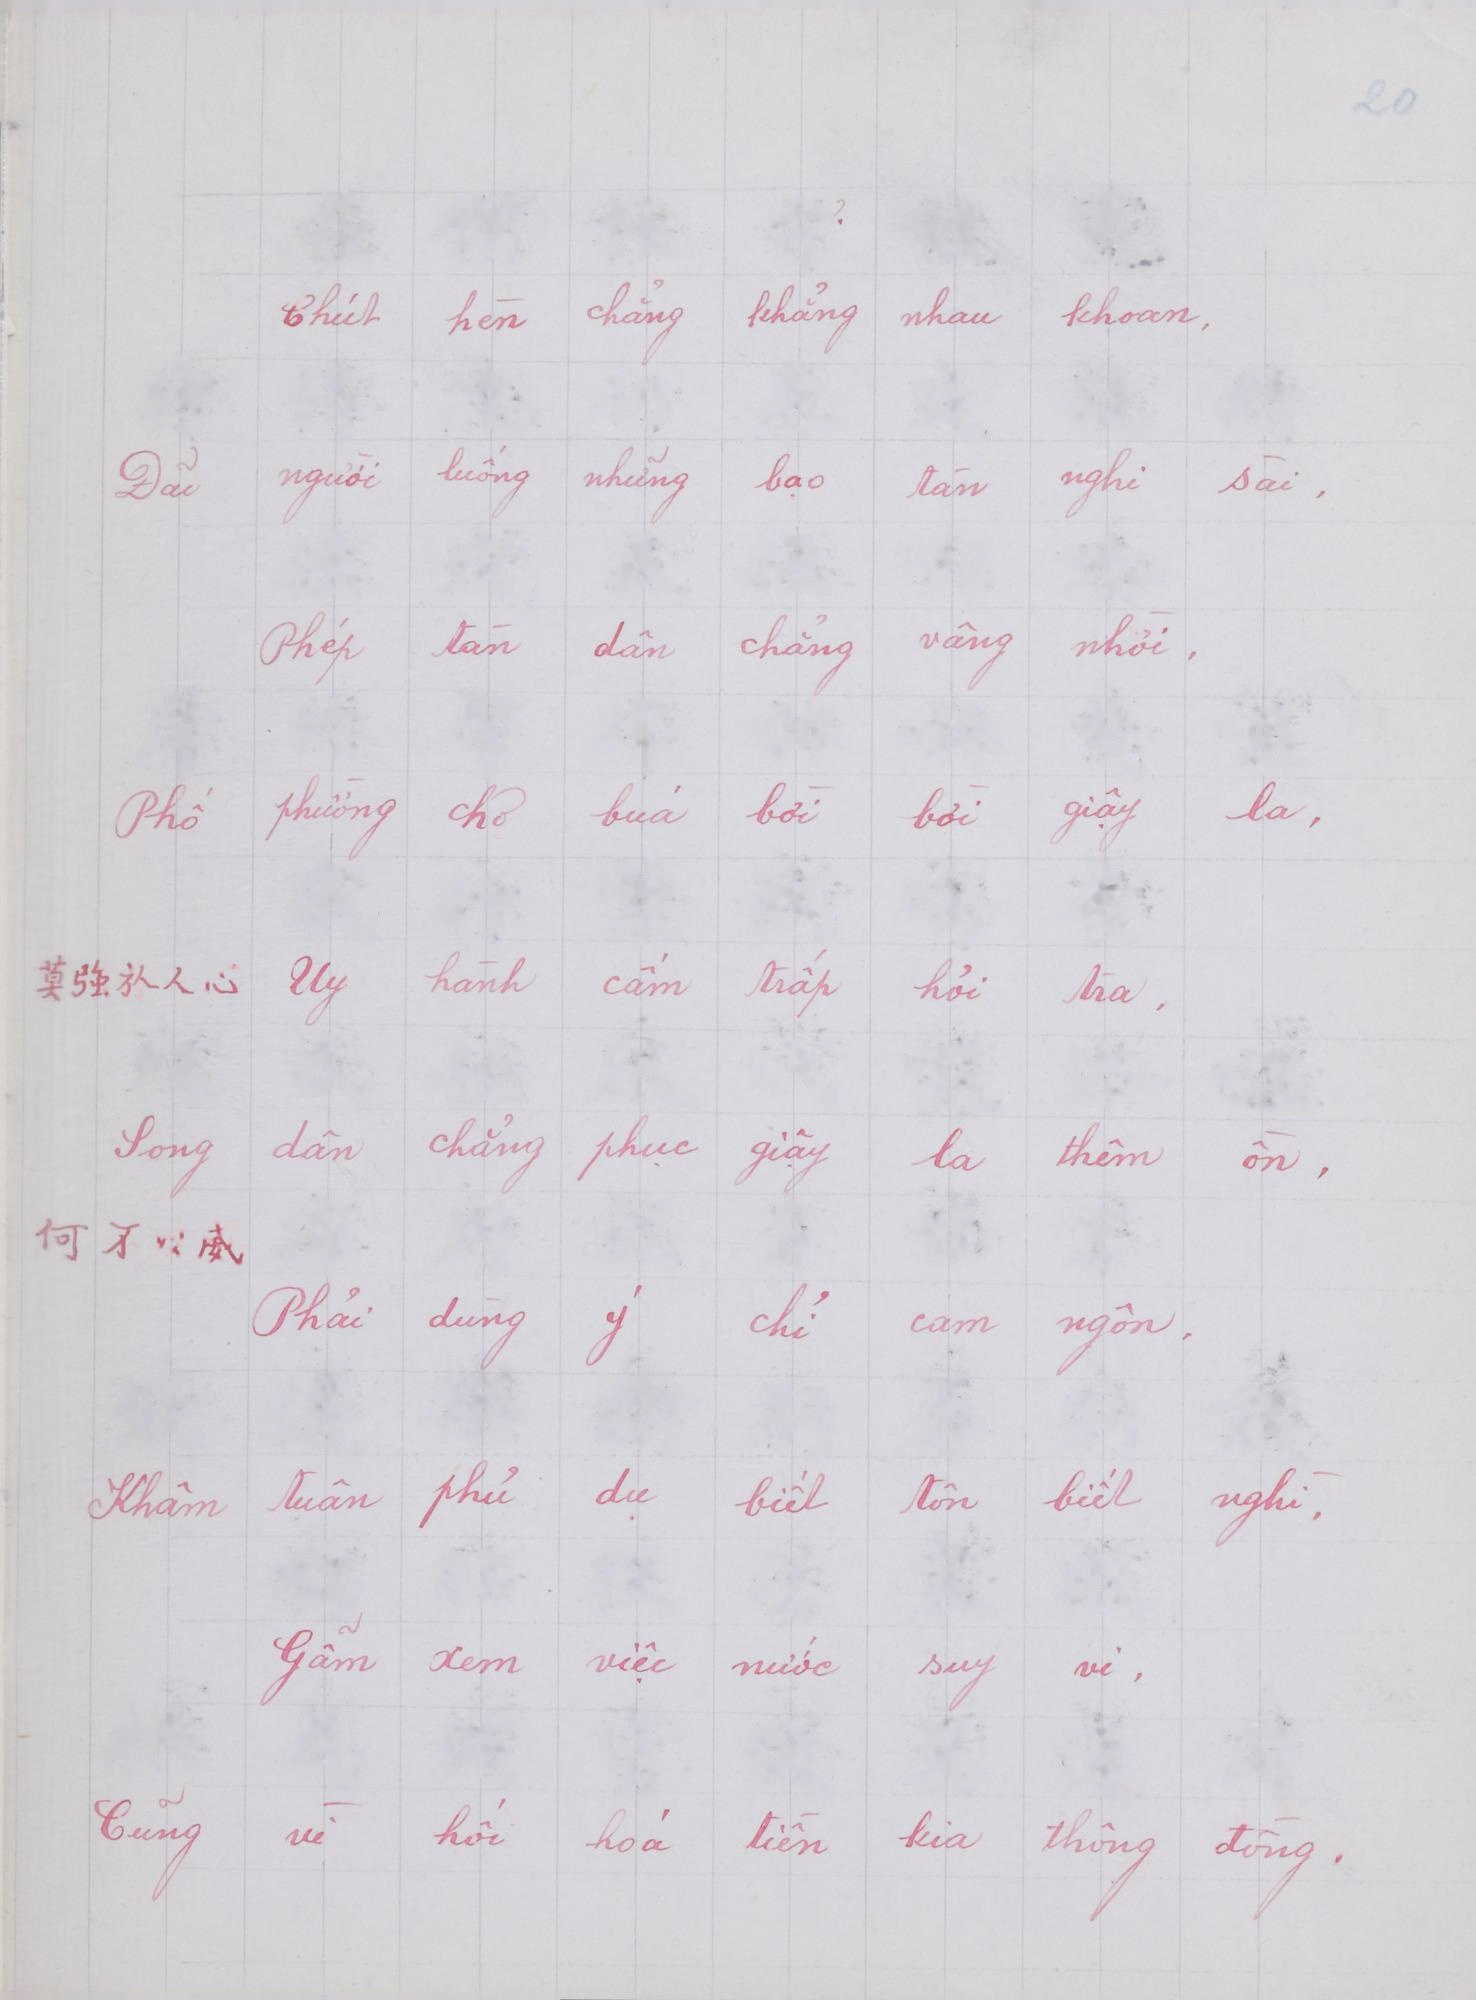 20
?
Chút hèn chẳng khẳng nhau khoan,
Đãi người luống những bạo tàn nghi sài,
Phép tàn dân chẳng vâng nhời,
Phố phường chợ buá bời bời giậy la,
莫強於人心 Uy hành cấm tráp hỏi tra,
Song dân chẳng phục giậy la thêm ồn,
何才以威
Phải dùng ý chỉ cam ngôn,
Khâm tuân phủ dụ biết tồn biết nghì,
Gẫm xem việc nước suy vi,
Cũng vì hối hoá tiền kia thông đồng,